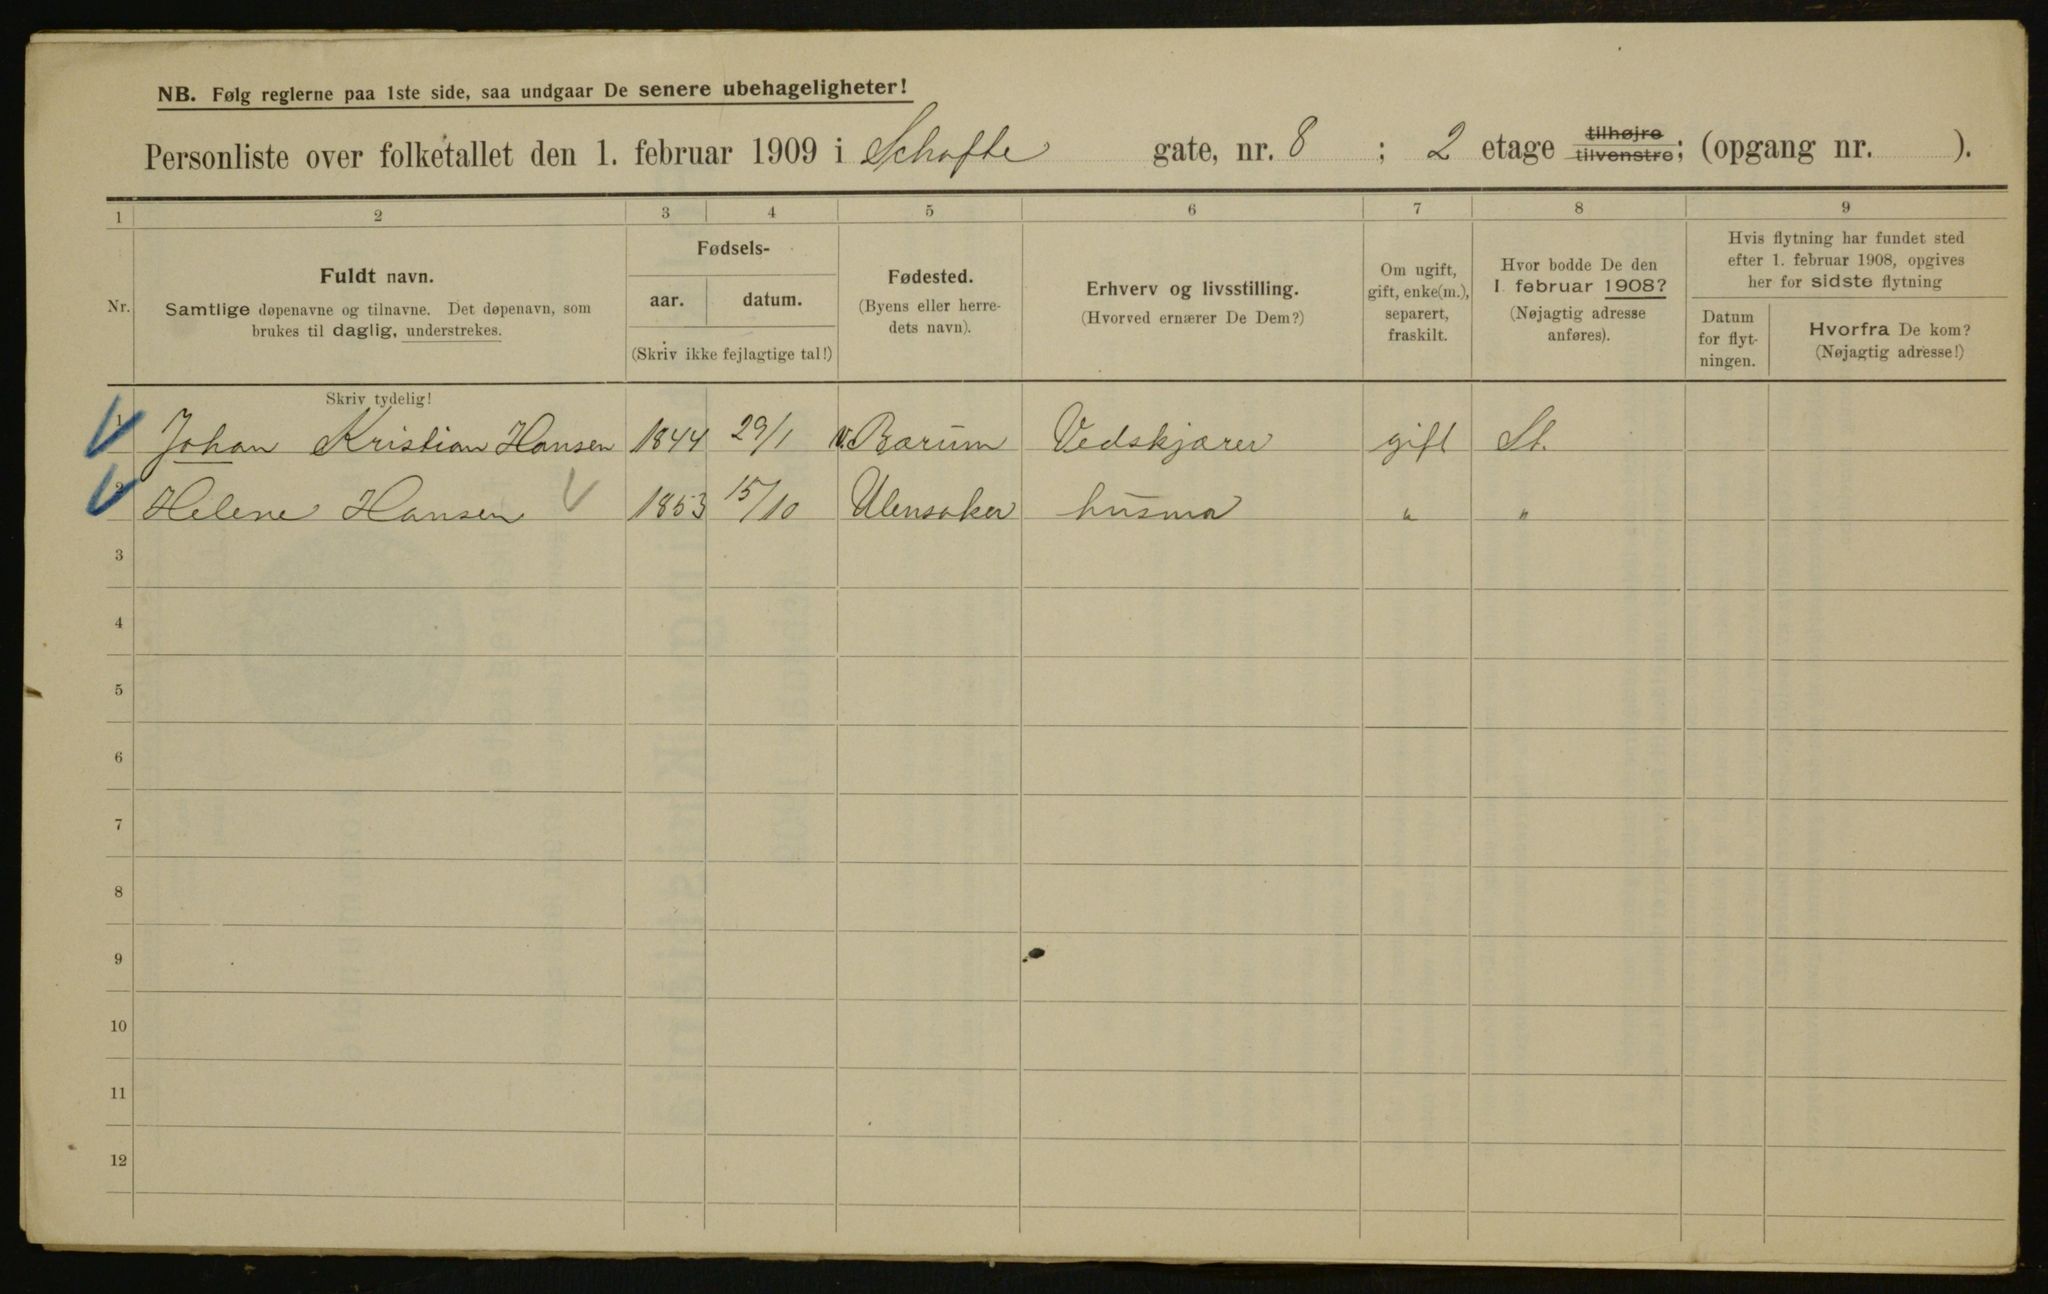 NB. Følg reglerne paa 1ste side, saa undgaar De senere ubehageligheter!
Personliste over folketallet den 1. februar 1909 i Schofte gate, nr. 8 ; 2 etage tilhøjre tilvenstre; (opgang nr. ).
1 2 3 4 5 6 7 8 9
Nr.
Fuldt navn.
Samtlige døpenavne og tilnavne. Det døpenavn, som
brukes til daglig, understrekes.
Fødsels-
aar. datum.
(Skriv ikke fejlagtige tal!)
Fødested.
(Byens eller herre-
dets navn).
Erhverv og livsstilling.
(Hvorved ernærer De Dem?)
Om ugift,
gift, enke(m.),
separert,
fraskilt.
Hvor bodde De den
1. februar 1908?
(Nøjagtig adresse
anføres).
Hvis flytning har fundet sted
efter 1. februar 1908, opgives
her for sidste flytning
Datum
for flyt-
ningen.
Hvorfra De kom?
(Nøjagtig adresse!)
Skriv tydelig!
1 Johan Kristian Hansen 1844 29/1 v. Bærum Vedskjærer gift St.
2 Helene Hansen 1853 15/10 Ulensaker husmo " "
3
4
5
6
7
8
9
10
11
12